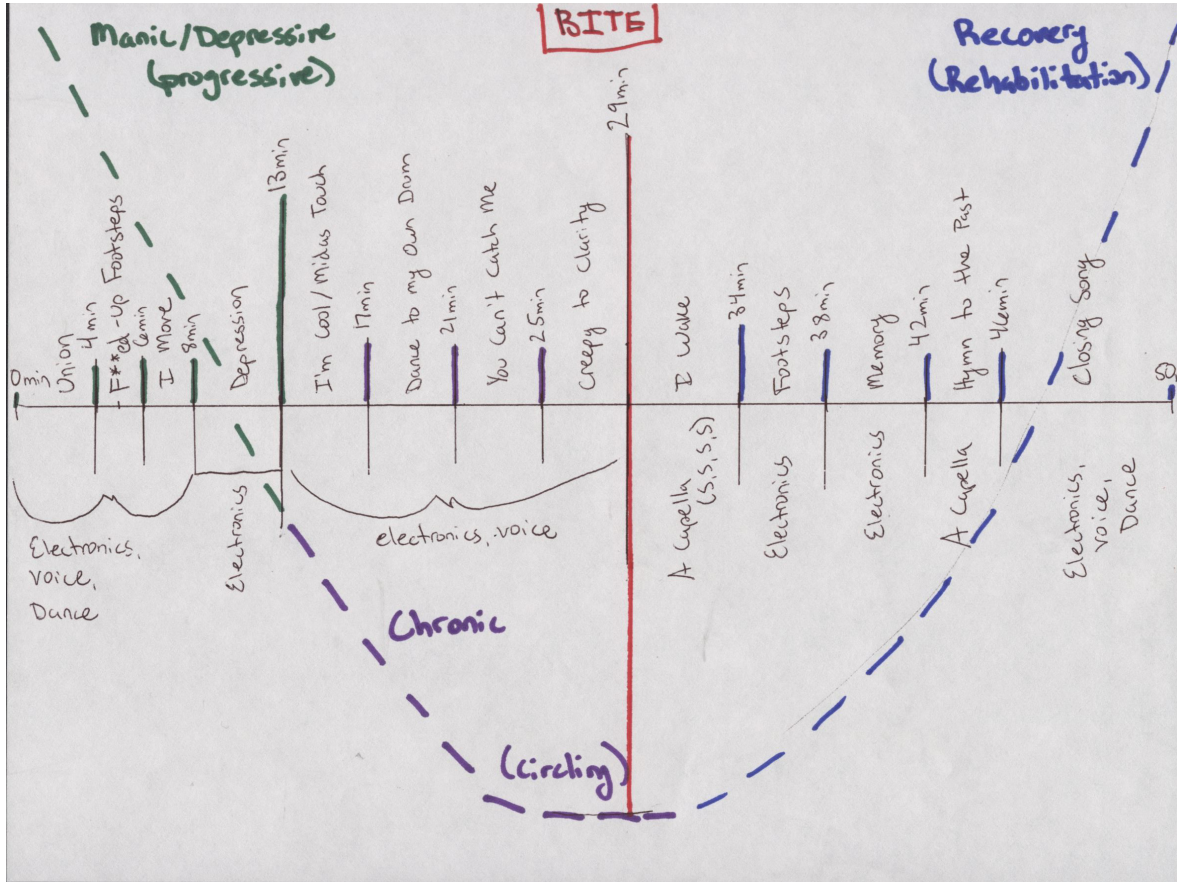 Manic/Depressive
(progressive)
BITE
Recovery
(Rehabilitation)
0min
Union
4min
F**ed-Up Footsteps
6min
I Move
8min
Depression
13min
I'm Cool/Midas Touch
17min
Dance to my Own Drum
21min
You Can't Catch Me
25min
Creepy to Clarity
29min
I Wake
34min
Footsteps
38min
Memory
42min
Hymn to the Past
46min
Closing Song
Electronics,
voice,
Dance
Electronics
electronics, voice
A Capella
(S, S, S, S)
Electronics
Electronics
A Capella
Electronics,
voice,
Dance
Chronic
(circling)